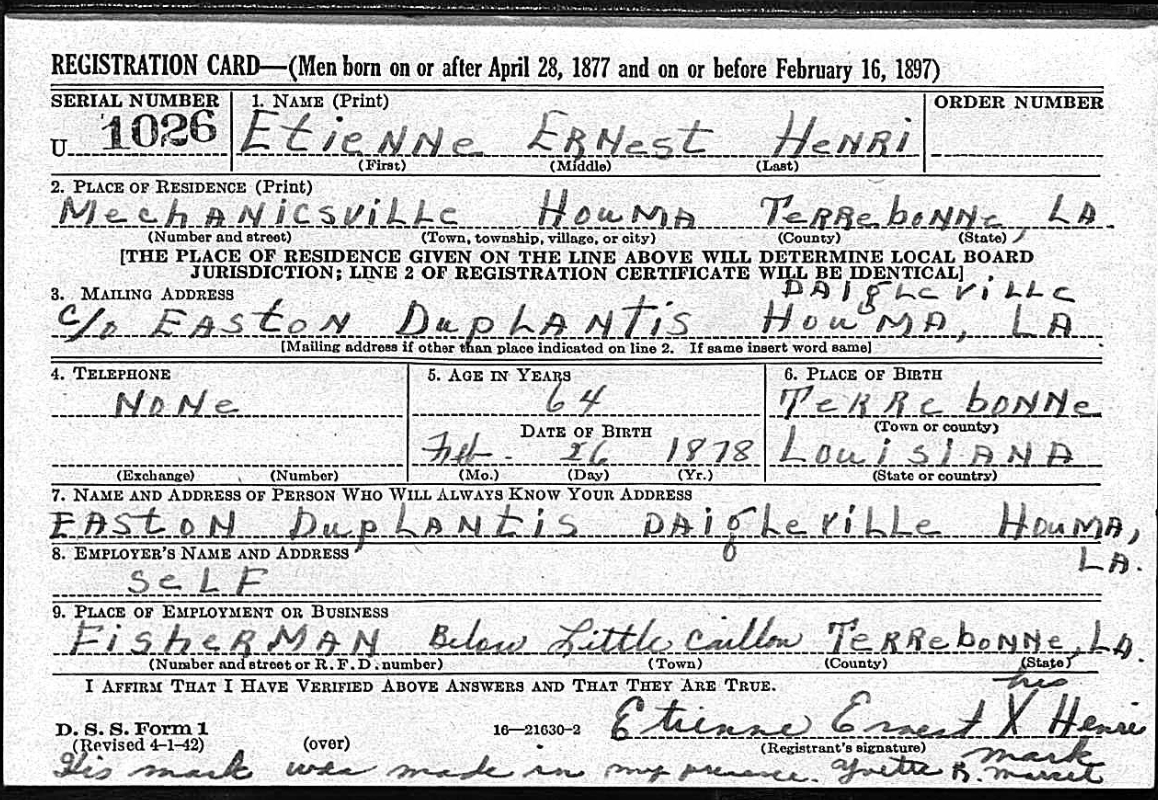 REGISTRATION CARD—(Men born on or after April 28, 1877 and on or before February 16, 1897)
SERIAL NUMBER 1. NAME (Print) ORDER NUMBER
U 1026 Etienne Ernest Henri
(First) (Middle) (Last)
2. PLACE OF RESIDENCE (Print)
Mechanicsville Houma Terrebonne, LA.
(Number and street) (Town, township, village, or city) (County) (State)
[THE PLACE OF RESIDENCE GIVEN ON THE LINE ABOVE WILL DETERMINE LOCAL BOARD
JURISDICTION; LINE 2 OF REGISTRATION CERTIFICATE WILL BE IDENTICAL]
3. MAILING ADDRESS Daigleville
c/o Easton Duplantis Houma, LA
[Mailing address if other than place indicated on line 2. If same insert word same]
4. TELEPHONE 5. AGE IN YEARS 6. PLACE OF BIRTH
None 64 Terrebonne
DATE OF BIRTH (Town or county)
Feb. 26 1878 Louisiana
(Exchange) (Number) (Mo.) (Day) (Yr.) (State or country)
7. NAME AND ADDRESS OF PERSON WHO WILL ALWAYS KNOW YOUR ADDRESS
Easton Duplantis Daigleville Houma,
8. EMPLOYER'S NAME AND ADDRESS LA.
Self
9. PLACE OF EMPLOYMENT OR BUSINESS
Fisherman Below Little Caillou Terrebonne, LA.
(Number and street or R. F. D. number) (Town) (County) (State)
I AFFIRM THAT I HAVE VERIFIED ABOVE ANSWERS AND THAT THEY ARE TRUE.
his
Etienne Ernest X Henri
D. S. S. Form 1 16—21630-2
(Revised 4-1-42) (over) (Registrant's signature) mark
His mark was made in my presence. Yvette B. Marcel